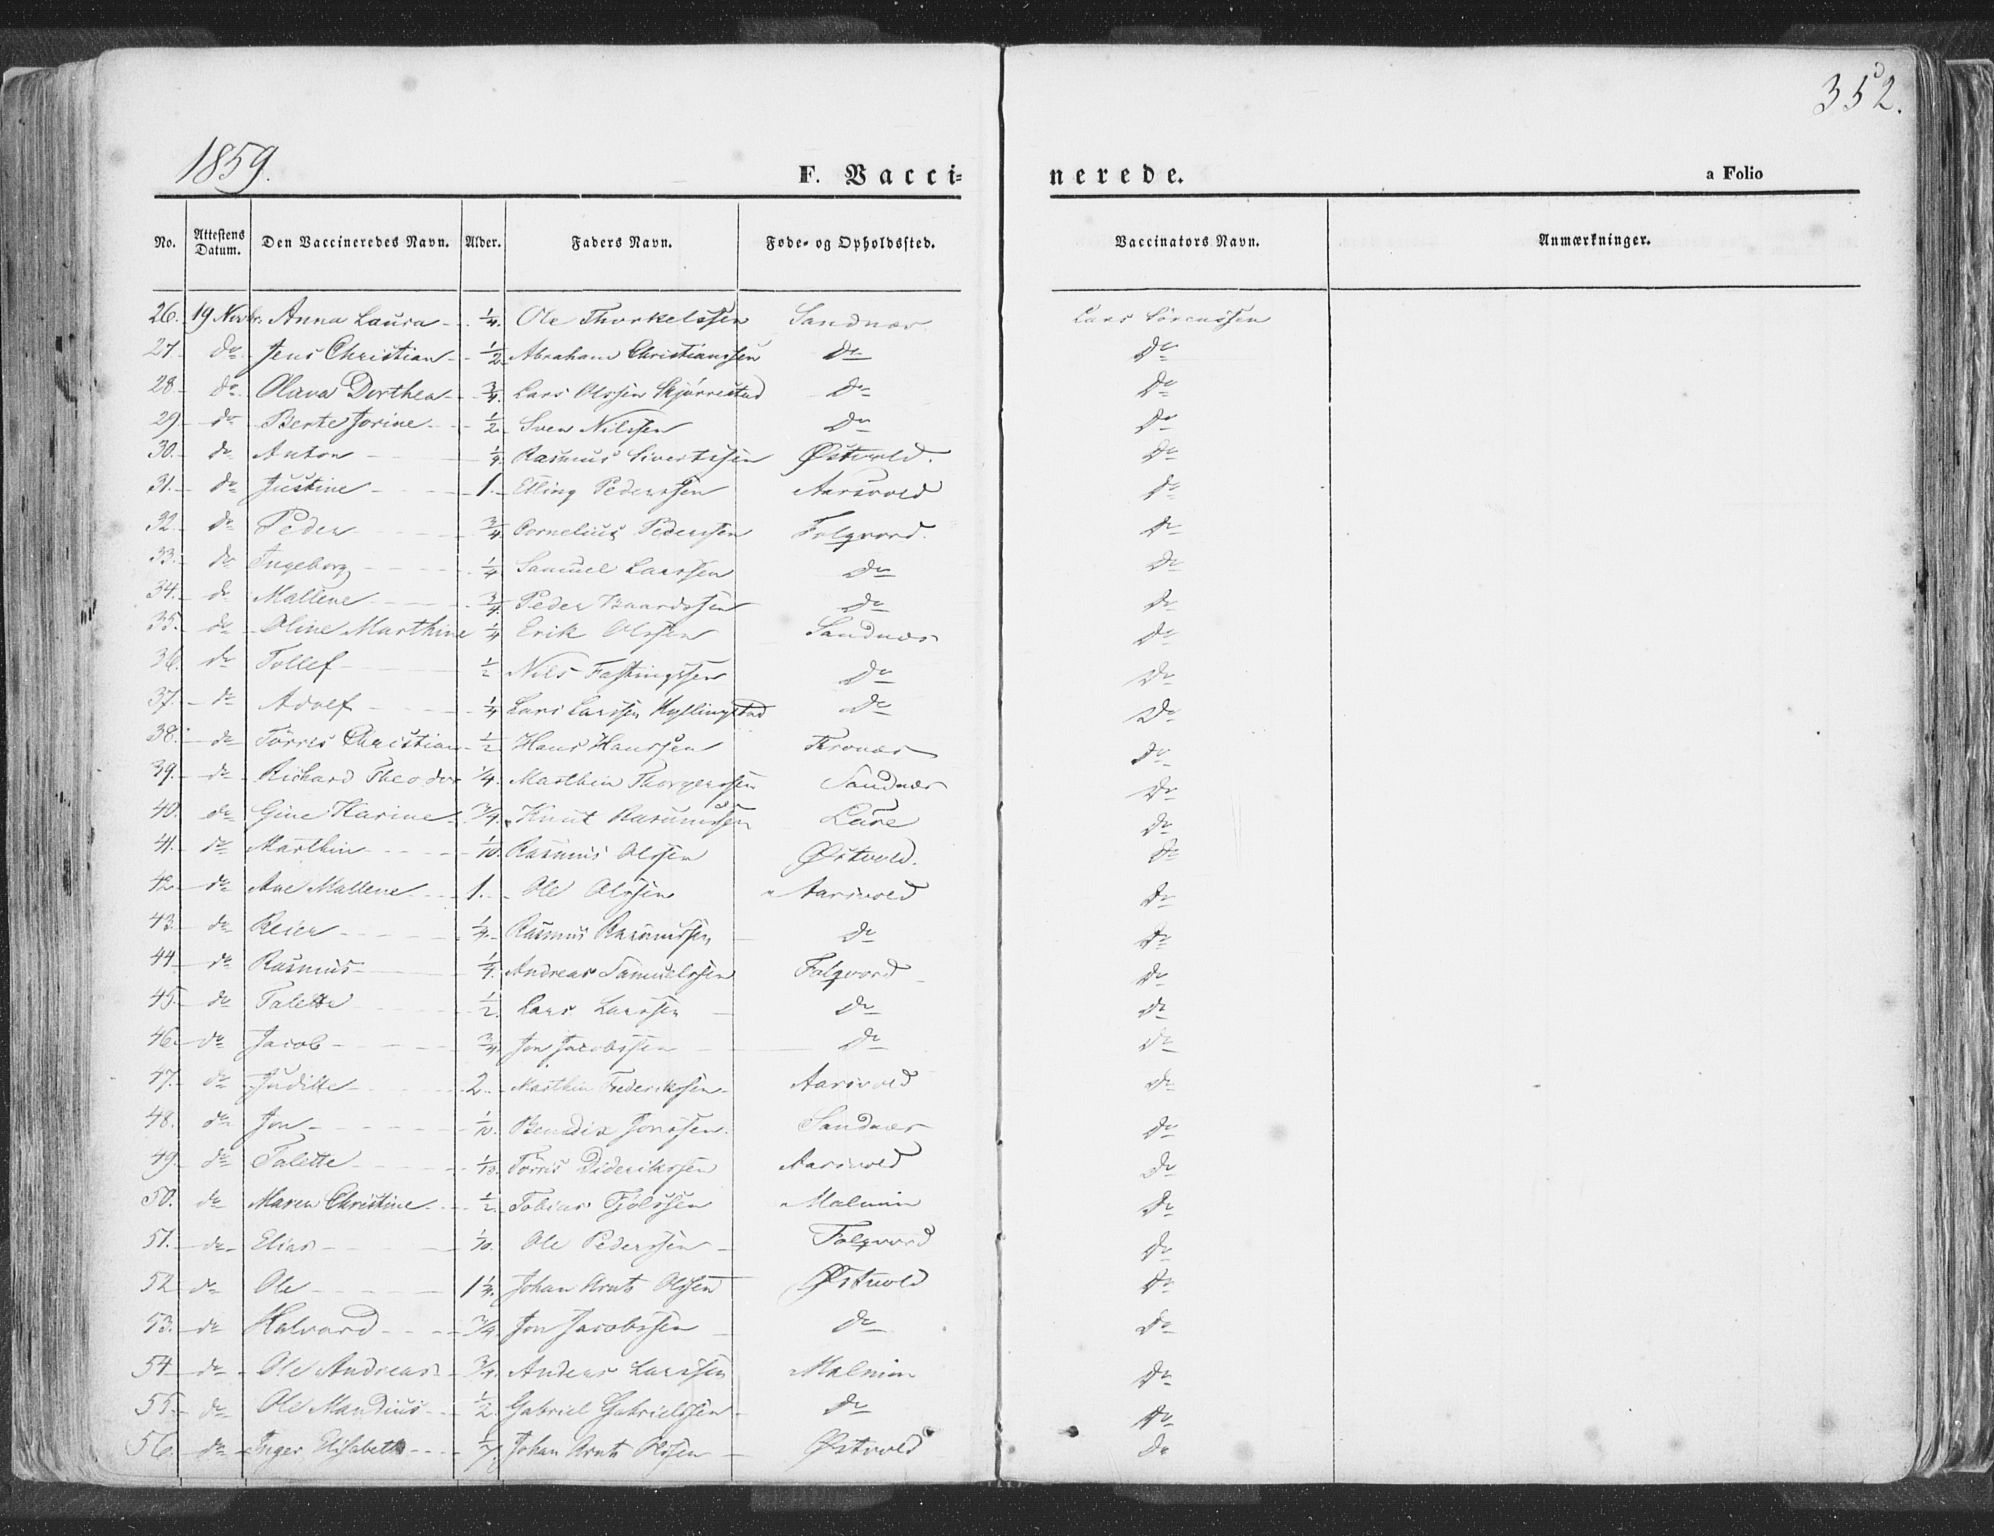 352.
1859.
F. Vacci-
nerede.
a Folio
No. Attestens Datum. Den Vaccineredes Navn. Alder. Faders Navn. Føde- og Opholdssted. Vaccinators Navn. Anmærkninger.
26. 19 Novbr. Anna Laura 1/4. Ole Thorkelssen Sandnæs. Lars Sørenssen
27. do Jens Christian 1/2 Abraham Christianssen do do
28. do Olava Dorthea 3/4. Lars Olssen Skjørrestad do do
29. do Berte Jorine 1/2. Sven Nilssen do do
30. do Anton 1/4. Rasmus Sivertssen Østvold. do
31. do Justine 1. Elling Pederssen Aarsvold do
32. do Peder 3/4 Cornelius Pederssen Folqvord. do
33. do Ingeborg 1/4 Samuel Larssen do do
34. do Mallene 3/4. Peder Baardssen do do
35. do Oline Marthine 1/4 Erik Olssen Sandnæs do
36. do Tollef 1/2 Nils Fastingssen do do
37. do Adolf 1/4 Lars Larssen Hyllingstad do do
38. do Tørres Christian 1/2 Hans Hanssen do
39. do Richard Theodor 1/4. Marthin Thorgerssen Sandnæs do
40. do Gine Karine 3/4. Knut Rasmussen Lure do
41. do Marthin 1/10. Rasmus Olssen Østvold. do
42. do Ane Mallene 1. Ole Olssen Aarsvold do
43. do Reier 1/4. Rasmus Rasmussen do do
44. do Rasmus 1/4. Andreas Samuelssen Folqvord do
45. do Talette 1/2. Lars Larssen do do
46. do Jacob 3/4. Jon Jacobssen do do
47. do Juditte 2. Marthin Frederikssen Aarsvold do
48. do Jon 1/10. Bendix Jonssen. Sandnæs do
49. do Talette 1/10. Tørris Dideriksssen Aarsvold do
50. do Maren Christine 1/2. Tobias Tjølssen Malmin do
51. do Elias 1/10. Ole Pederssen Folqvord do
52 do Ole 1 1/4. Johan Arnt Olssen Østvold do
53. do Halvard 3/4 Jon Jacobssen do do
54 do Ole Andreas 3/4. Anders Larssen Malmin do
55. do Ole Mandius 1/2. Gabriel Gabrielssen do do
56. do Inger Elisabeth Johan Arnt Olssen Østvold do